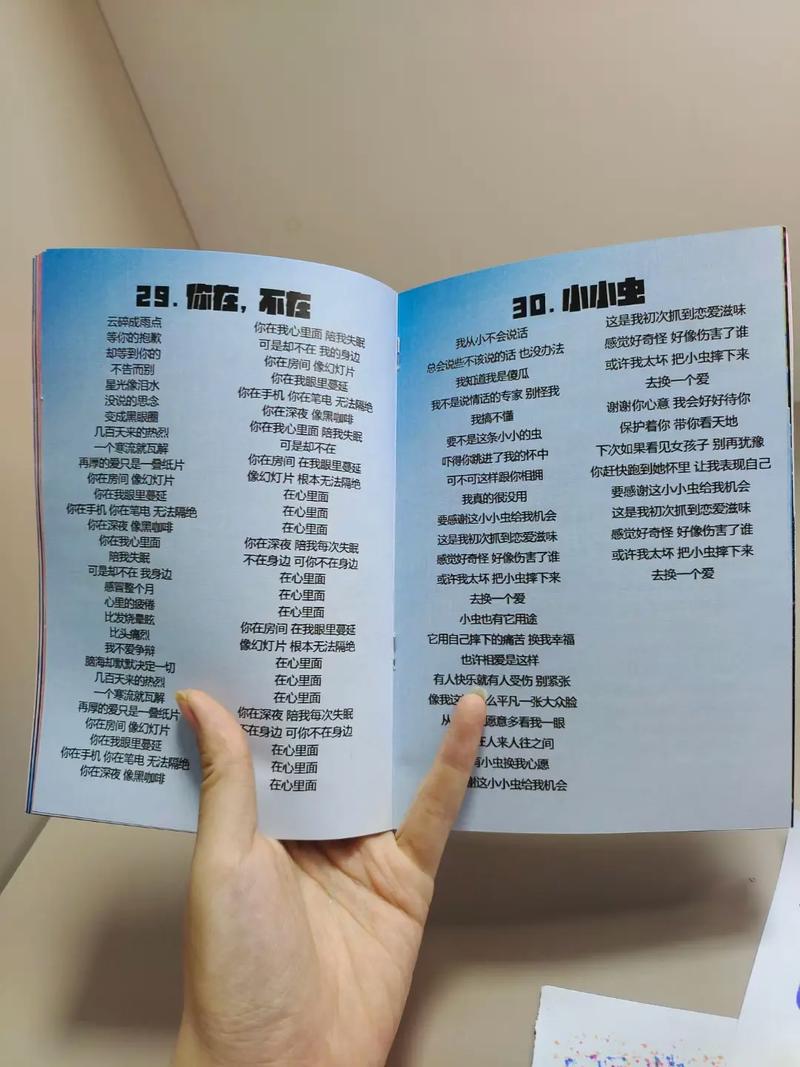 29. 你在，不在
云碎成雨点
等你的抱歉
却等到你的
不告而别
星光像泪水
没说的思念
变成黑眼圈
几百天来的热烈
一个寒流就瓦解
再厚的爱只是一叠纸片
你在房间 像幻灯片
你在我眼里蔓延
你在手机 你在笔电 无法隔绝
你在深夜 像黑咖啡
你在我心里面
陪我失眠
可是却不在 我身边
感冒整个月
心里的疲倦
比发烧晕眩
比头痛烈
我不爱争辩
脑海却默默决定一切
几百天来的热烈
一个寒流就瓦解
再厚的爱只是一叠纸片
你在房间 像幻灯片
你在我眼里蔓延
你在手机 你在笔电 无法隔绝
你在深夜 像黑咖啡
你在我心里面 陪我失眠
可是却不在 我的身边
你在房间 像幻灯片
你在我眼里蔓延
你在手机 你在笔电 无法隔绝
你在深夜 像黑咖啡
你在我心里面 陪我失眠
可是却不在
你在房间 在我眼里蔓延
像幻灯片 根本无法隔绝
在心里面
在心里面
在心里面
你在深夜 陪我每次失眠
不在身边 可你不在身边
在心里面
在心里面
在心里面
你在房间 在我眼里蔓延
像幻灯片 根本无法隔绝
在心里面
在心里面
在心里面
你在深夜 陪我每次失眠
不在身边 可你不在身边
在心里面
在心里面
在心里面
30. 小小虫
我从小不会说话
总会说些不该说的话 也没办法
我知道我是傻瓜
我不是说情话的专家 别怪我
我搞不懂
要不是这条小小的虫
吓得你跳进了我的怀中
可不可这样跟你相拥
我真的很没用
要感谢这小小虫给我机会
这是我初次抓到恋爱滋味
感觉好奇怪 好像伤害了谁
或许我太坏 把小虫摔下来
去换一个爱
小虫也有它用途
它用自己摔下的痛苦 换我幸福
也许相爱是这样
有人快乐就有人受伤 别紧张
像我这 么平凡一张大众脸
从 愿意多看我一眼
在人来人往之间
小虫换我心愿
谢这小小虫给我机会
这是我初次抓到恋爱滋味
感觉好奇怪 好像伤害了谁
或许我太坏 把小虫摔下来
去换一个爱
谢谢你心意 我会好好待你
保护着你 带你看天地
下次如果看见女孩子 别再犹豫
你赶快跑到她怀里 让我表现自己
要感谢这小小虫给我机会
这是我初次抓到恋爱滋味
感觉好奇怪 好像伤害了谁
或许我太坏 把小虫摔下来
去换一个爱